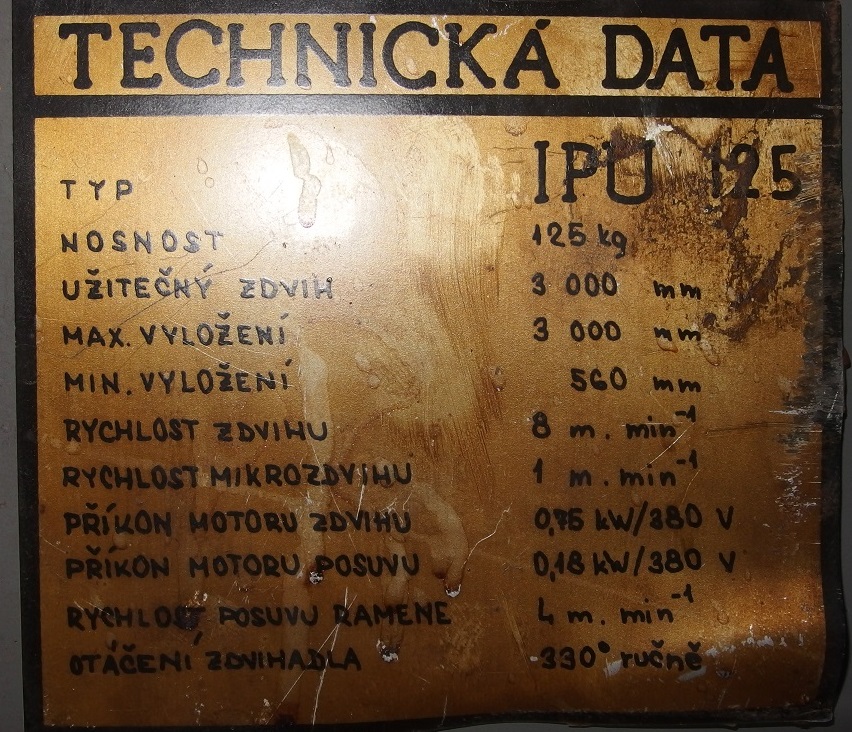 TECHNICKÁ DATA
TYP IPU 125
NOSNOST 125 kg
UŽITEČNÝ ZDVIH 3 000 mm
MAX. VYLOŽENÍ 3 000 mm
MIN. VYLOŽENÍ 560 mm
RYCHLOST ZDVIHU 8 m. min⁻¹
RYCHLOST MIKROZDVIHU 1 m. min⁻¹
PŘÍKON MOTORU ZDVIHU 0,75 kW/380 V
PŘÍKON MOTORU POSUVU 0,18 kW/380 V
RYCHLOST POSUVU RAMENE 4 m. min⁻¹
OTÁČENÍ ZDVIHADLA 330° ručně